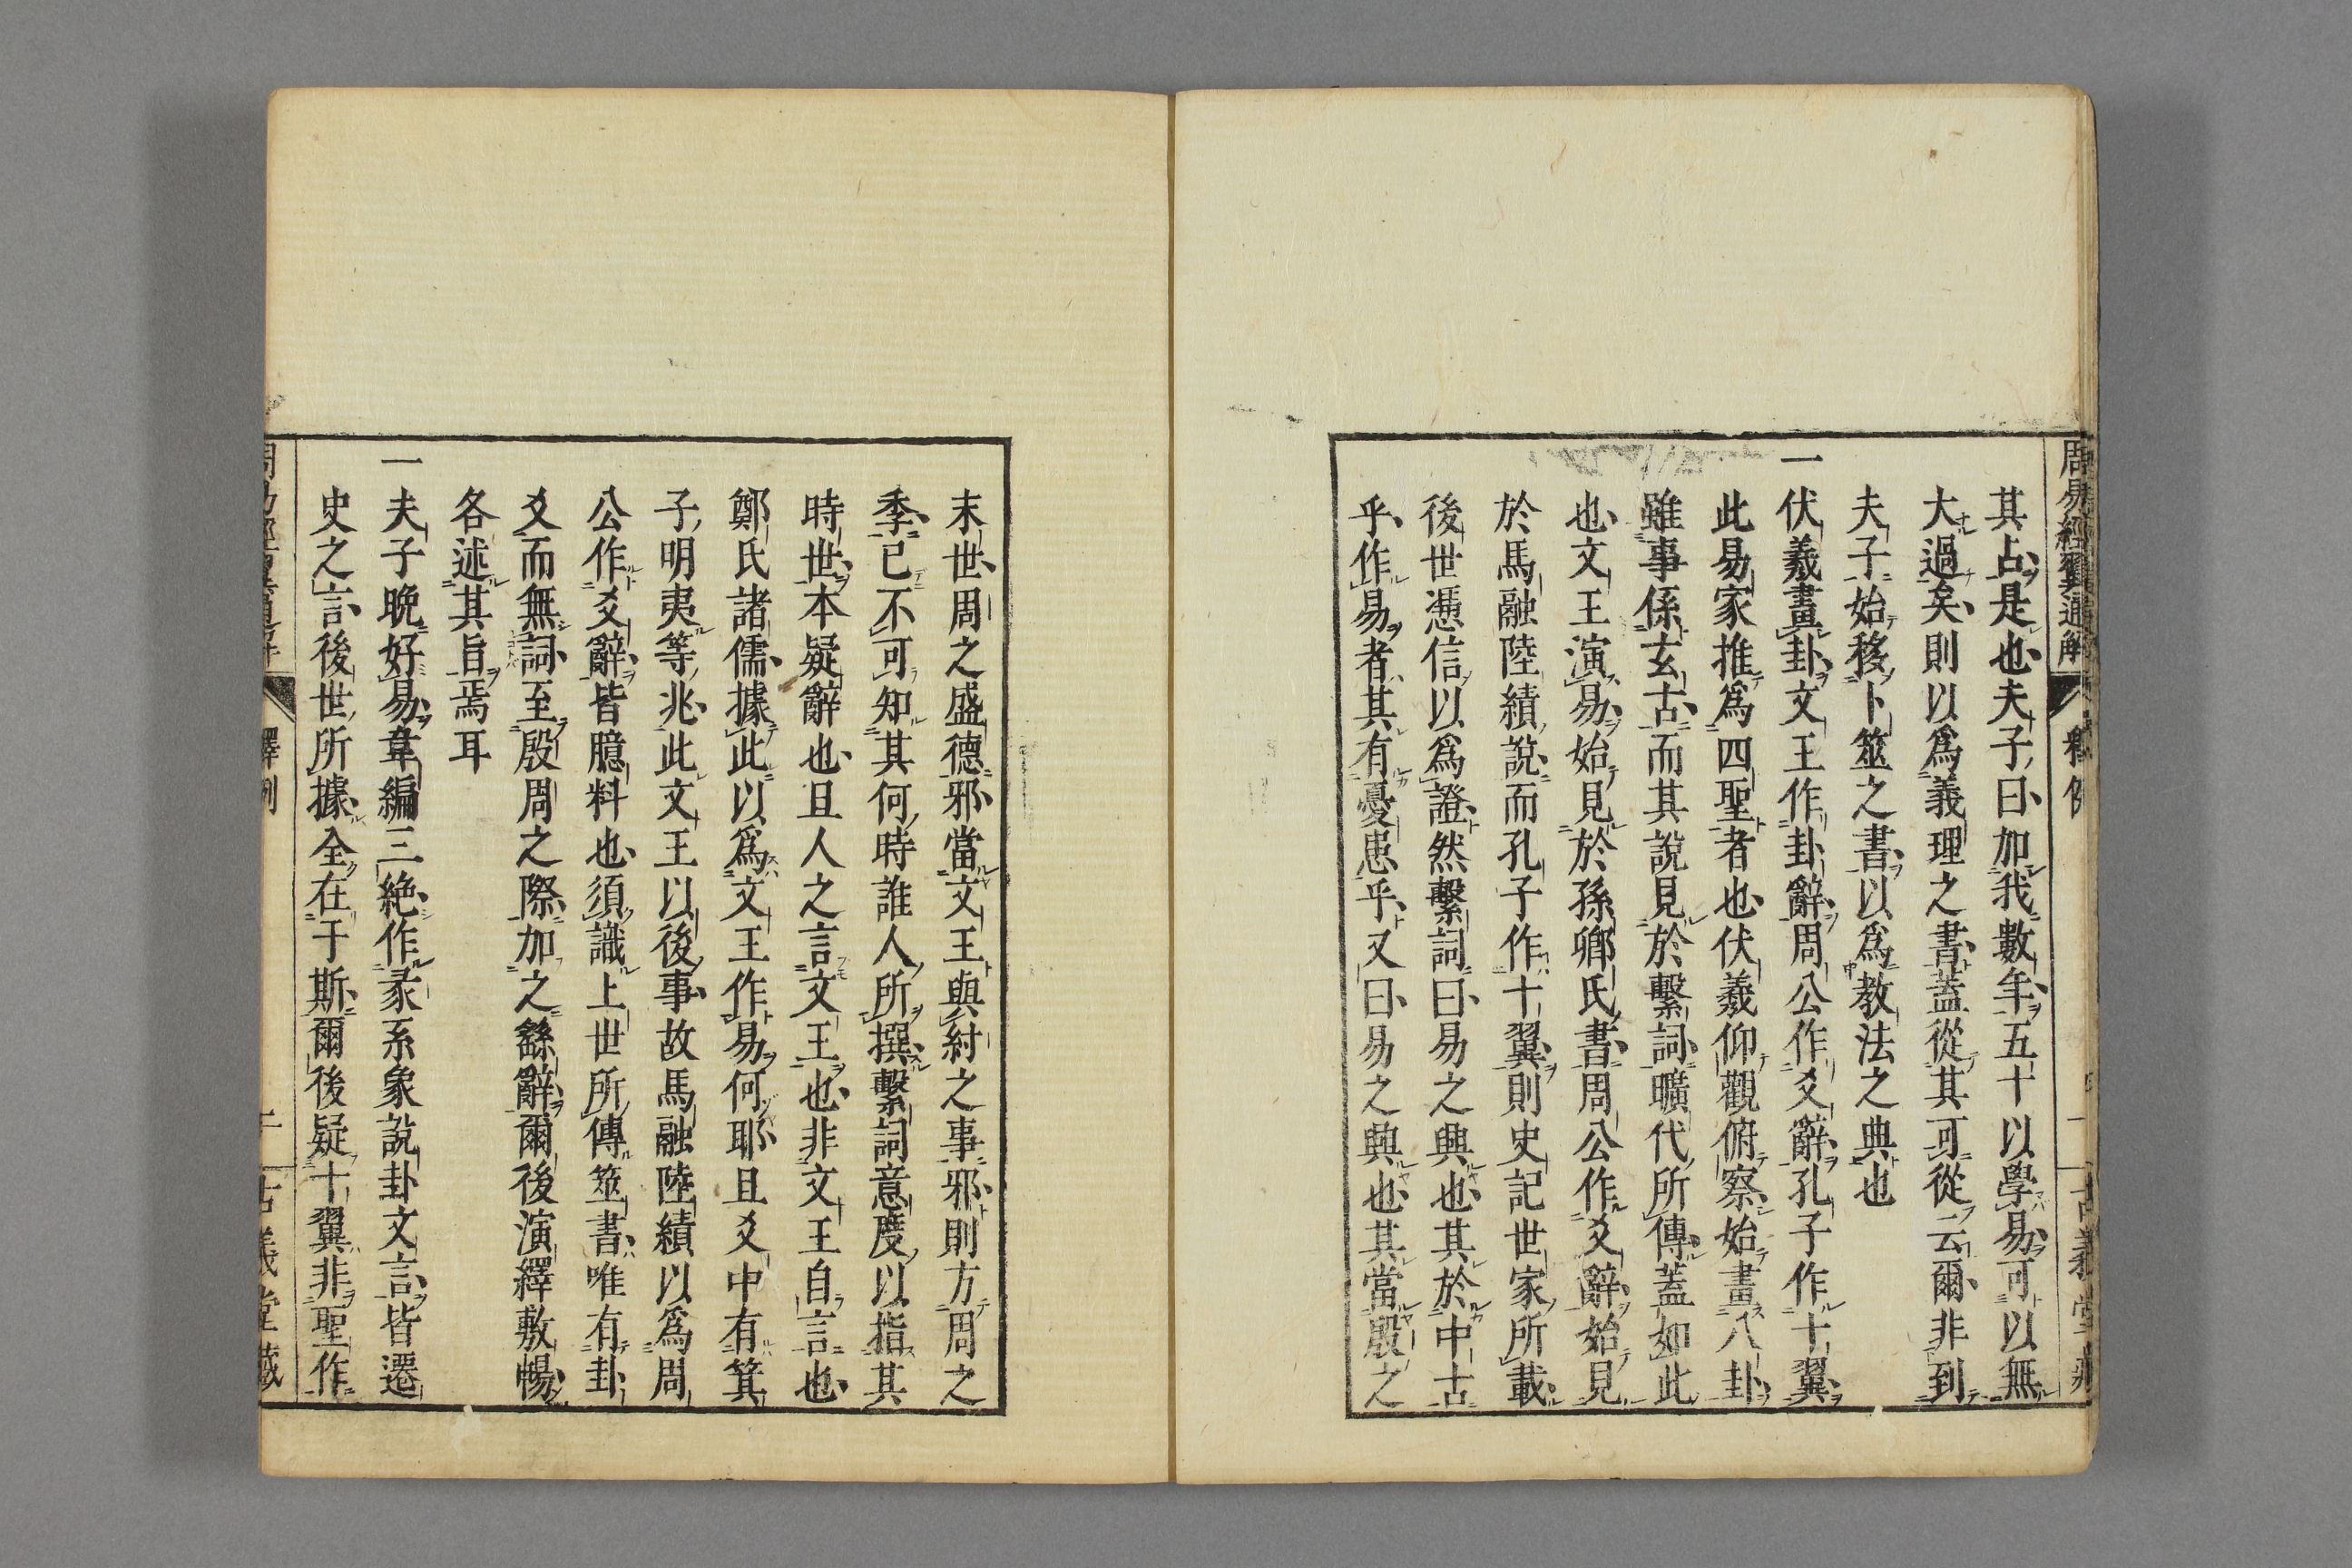 周易經翼通解
釋例
其占是也夫子曰加我數年五十以學易可以無
大過矣則以爲義理之書蓋從其可從云爾非到
夫子始移卜筮之書以爲教法之典也
一伏羲畫卦文王作卦辭周公作爻辭孔子作十翼
此易家推爲四聖者也伏羲仰觀俯察始畫八卦
雖事係玄古而其說見於繫詞曠代所傳蓋如此
也文王演易始見於孫卿氏書周公作爻辭始見
於馬融陸績說而孔子作十翼則史記世家所載
後世憑信以爲證然繫詞曰易之興也其於中古
乎作易者其有憂患乎又曰易之興也其當殷之
末世周之盛德邪當文王與紂之事邪則方周之
季已不可知其何時誰人所撰繫詞意度以指其
時世本疑辭也且人之言文王也非文王自言也
鄭氏諸儒據此以爲文王作易何耶且爻中有箕
子明夷等兆此文王以後事故馬融陸績以爲周
公作爻辭皆臆料也須識上世所傳筮書唯有卦
爻而無詞至殷周之際加之繇辭爾後演繹敷暢
各述其旨焉耳
一夫子晚好易韋編三絶作彖系象說卦文言皆遷
史之言後世所據全在于斯爾後疑十翼非聖作
釋例
古義堂藏